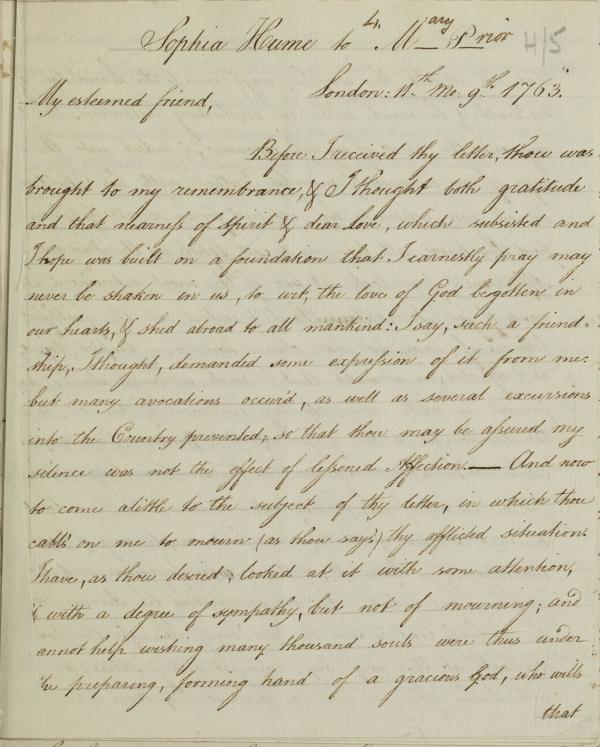 4.
Sophia Hume to Mary Prior
4/5
London: 11th. Mo. 9th. 1763.
My esteemed friend,
Before I received thy letter, thou was
brought to my remembrance, & I thought both gratitude
and that nearness of spirit & dear Love, which subsisted and
I hope was built on a foundation that I earnestly pray may
never be shaken in us, to wit, the love of God begotten in
our hearts, & shed abroad to all mankind: I say, such a friend-
ship, I thought, demanded some expression of it from me:
but many avocations occur'd, as well as several excursions
into the Country prevented; so that thou may be assured my
silence was not the effect of lessened Affection. — And now
to come alittle to the subject of thy letter, in which thou
calls on me to mourn (as thou says) thy afflicted situation.
I have, as thou desired, looked at it with some attention,
& with a degree of sympathy, but not of mourning; and
annot help wishing many thousand souls were thus under
he preparing, forming hand of a gracious God, who wills
that